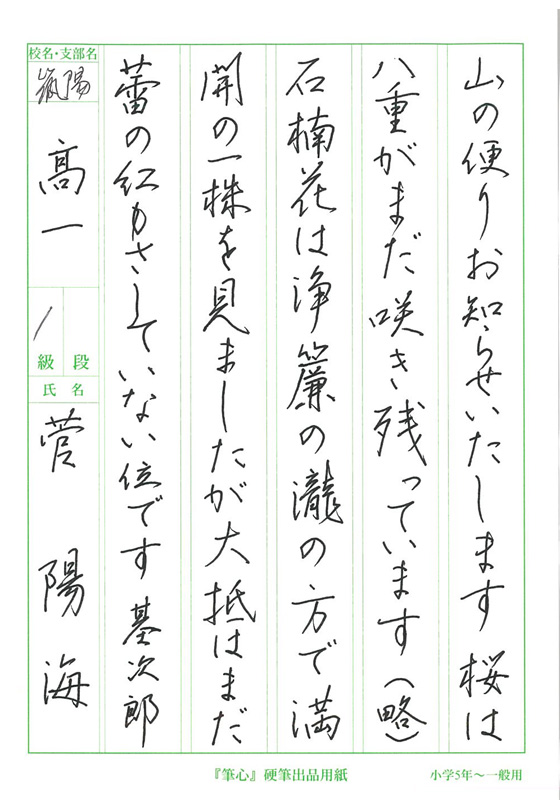 山の便りお知らせいたします 桜は
八重がまだ咲き残っています(略)
石楠花は浄簾の瀧の方で満
開の一株を見ましたが大抵はまだ
蕾の紅もさしていない位です 基次郎
校名・支部名
陽
高一
級 段
1
氏名
菅 陽海
『筆心』硬筆出品用紙
小学5年〜一般用